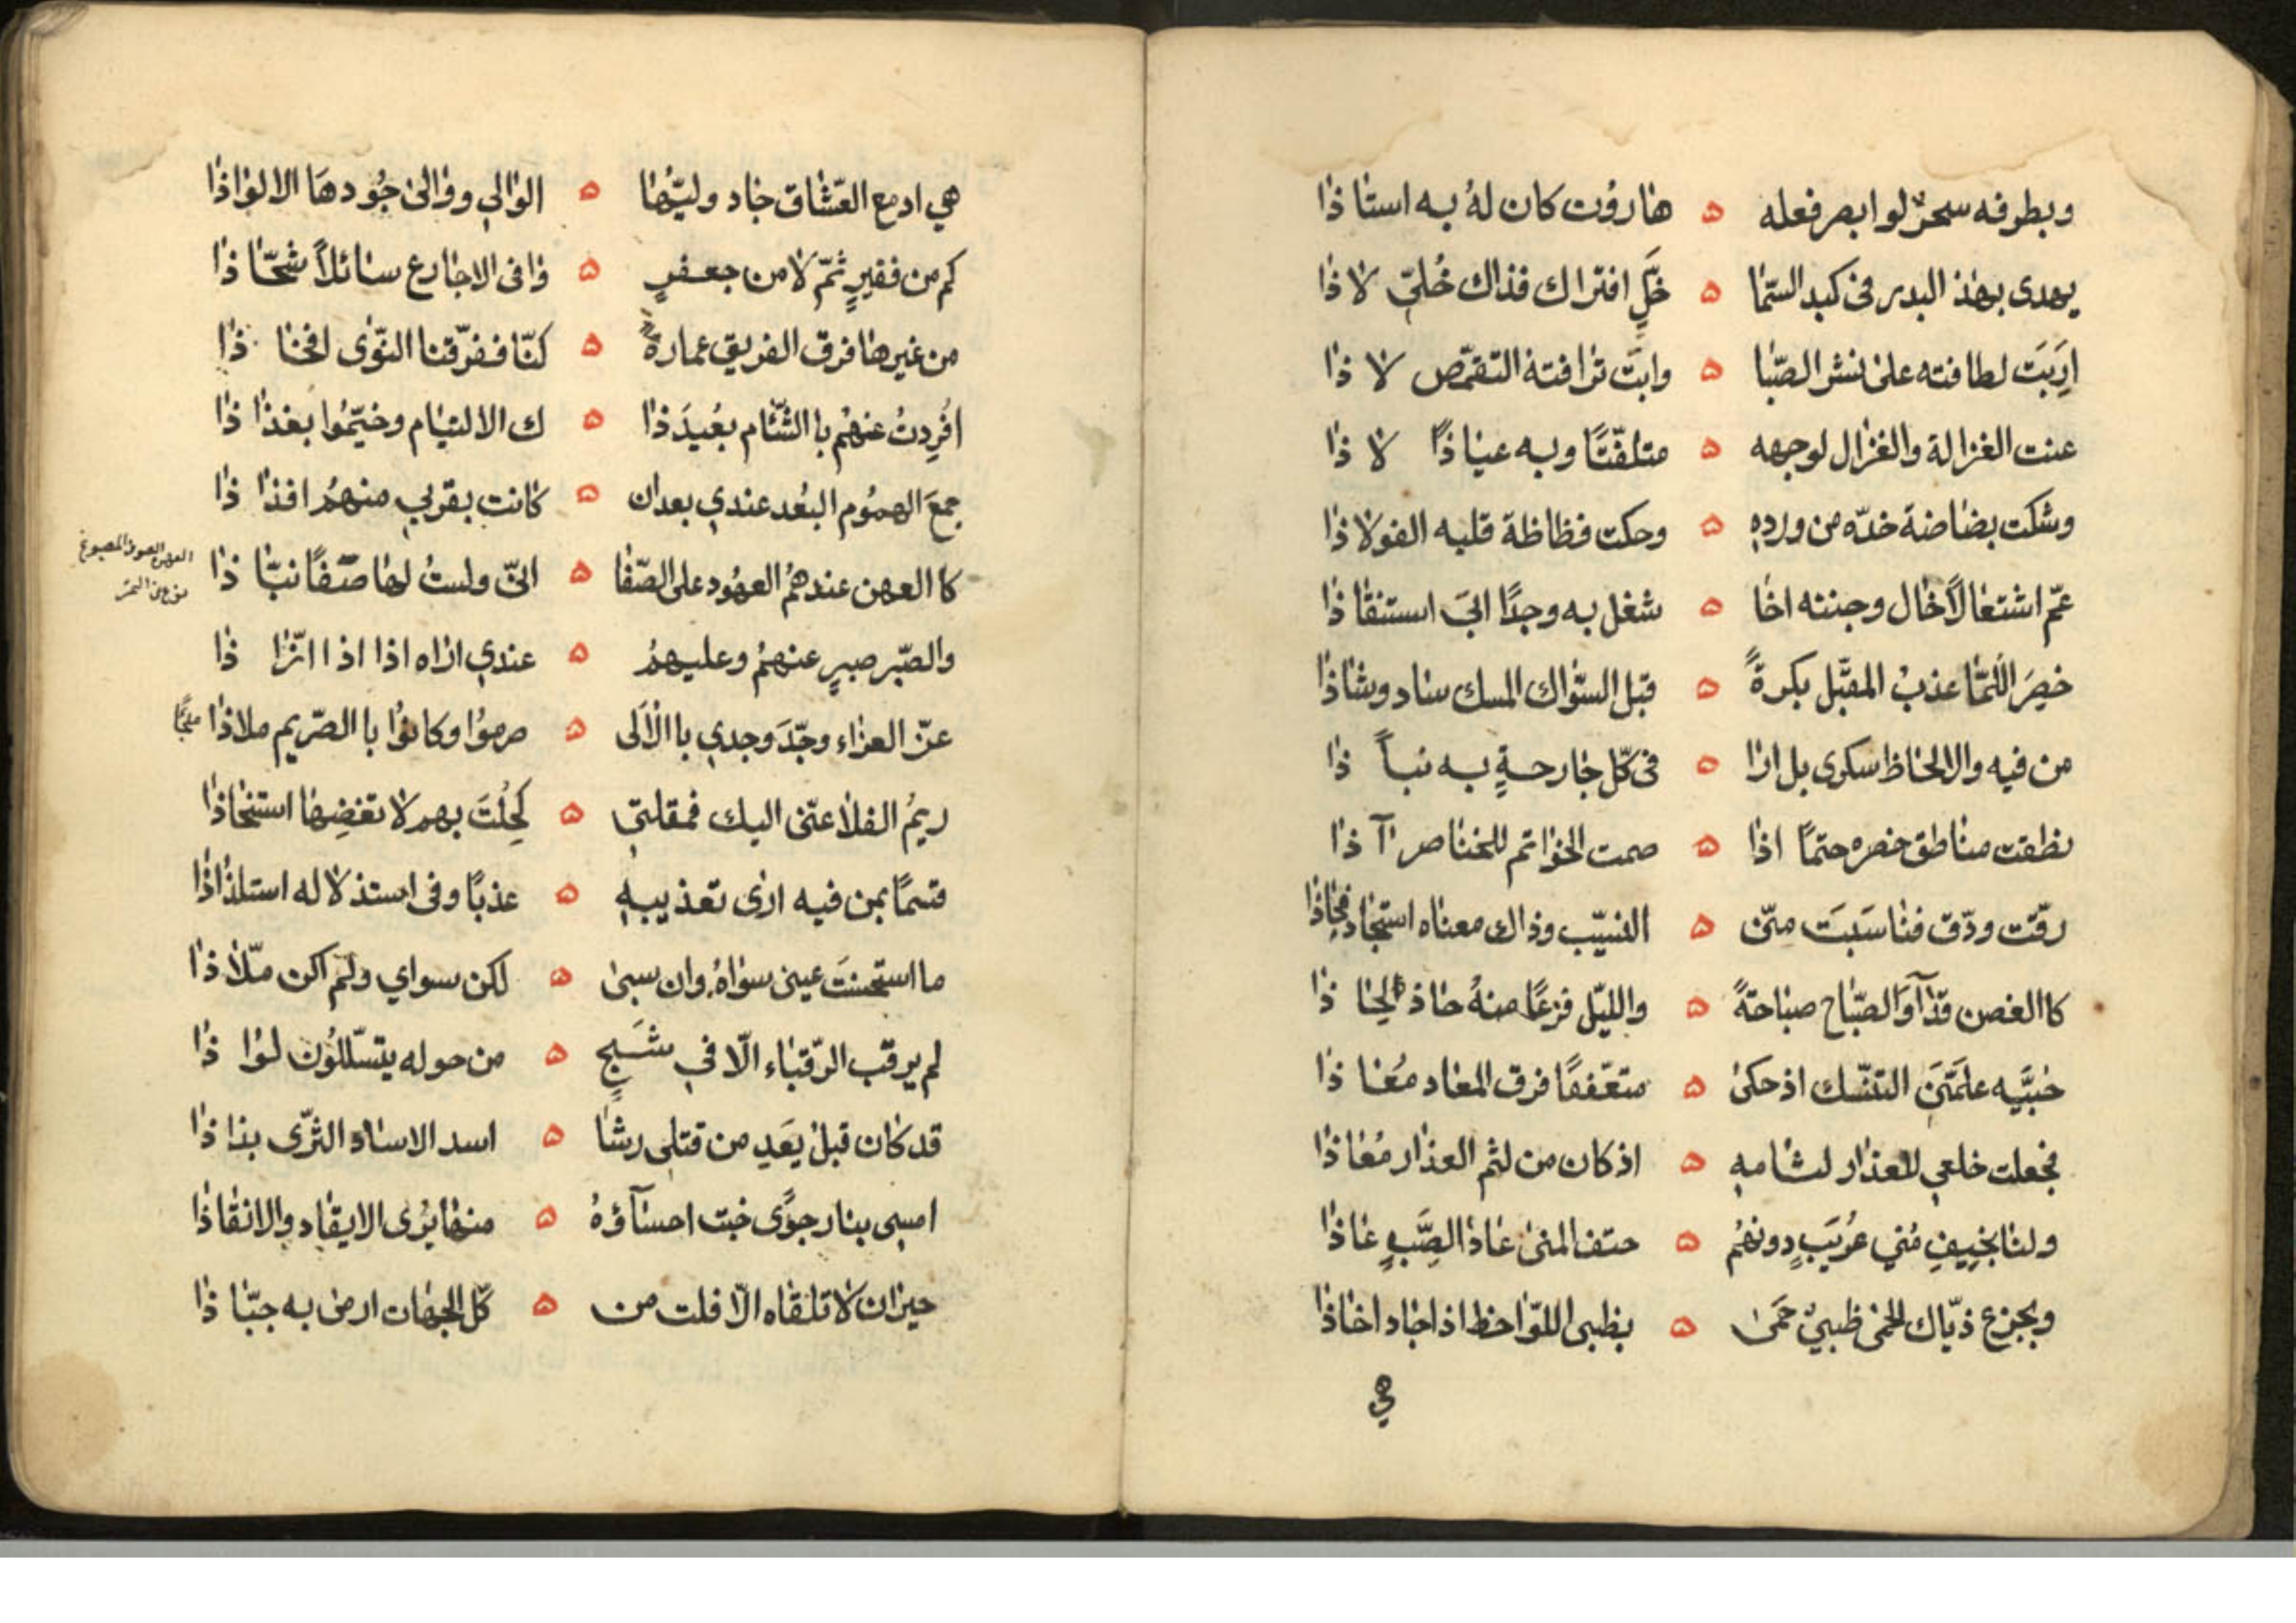 وبطرفه سحرٌ لو ابصر فعله ه هاروُت كان لهُ به استاذا
يهدى بهذ البدر فى كبد السّما ه خَلِّ افتراك فذاك خُلّي لا ذا
اِرَبَت لطافته على نشر الصّبا ه وابت ترافته التقمّص لا ذا
عنت الغزالة والغزال لوجهه ه متلفّتًا وبه عياذًا لا ذا
وشكت بضاضة خدّه من وردهِ ه وحكت فظاظة قلبه الفولاذا
عمّ اشتغالاً خال وجنته اخا ه شغل به وجدًا ابَي استنقاذا
خصِرَ اللّمَا عذبُ المقبَّل بكرةً ه قبل السّواك المسك ساد وشاذا
من فيه والالحاظ سكرى بل ارا ه فى كلّ جارحةٍ به نباً ذا
نطقت مناطق خصره حتمًا اذا ه صمت الخواتم للخناصر اآ ذا
رقّت ودّق فناسَبَت منّى ه النسيّب وذاك معناه استجاد فحاذا
كاالغصن قدّاً آوالصّباح صباحةً ه والليّل فزعًا منهُ حاذ الحا ذا
حبيَّه علمَّنَى التنسّك اذ حكى ه متعّففًا فرق المعاد مُعا ذا
فجعلت خلعى للعذار لشامهِ ه اذ كان من لثم العذار مُعاذا
ولنا بخِيفِ مُني عُريَبٍ دونهُم ه حتف المنى عاذا الصَّبِ عاذا
وبجزع ذيّاك الحمى ظبيٌ حَمَى ه بظبى اللوّاحظ اذ اجاد اخاذا
هي
هي ادمع العشّاق جاد وليّها ه الوالي ووالى جُودهَا الالواذا
كم من فقيرٍ ثمّ لا من جعفرٍ ه وافى الاجارع سائلاً شحّا ذا
من غيرها فرق الفريق عمارةً ه كنّا ففرّقنا النّوى افخا ذا
اُفرِدتُ عنهُم باالشّام بعُيدَ ذا ه ك الالتيام وخيّمُوا بغذا ذا
جمعَ الهمُوم البُعد عندي بعدان ه كانت بقربي منهمُ افذا ذا
كاالعهن عندهمُ العهُود على الصّفا ه انّى ولستُ لها صَفًا نبّا ذا
العهن الصوف المصبوغ
والصّبر صبرٍ عنهمُ وعليهمُ ه عندي اراه اذا اذا ازّا ذا
عزّ العزاء وجّدَ وجدي باالاَلَى ه صرموُا وكانوُا باالصّريم ملاذا
ملجًا
ريمُ الفلا عنّى اليك فمقلتي ه كَحِلُتَ بهم لا تغضِها استنحاذا
قسمًا بمن فيه ارى تعذيبهِ ه عذبًا وفى استذلاله استلذاذا
ما استحسنتَ عينى سواهُ وان سبى ه لكن سواي ولم اكن ملّا ذا
لم يرقب الرّقباء الّا في شَجٍ ه من حوله يتسّللُون لوا ذا
قد كان قبل يعَدِ من قتلى رشا ه اسد الاساد الثّرى بذا ذا
امسى بنار جوًى خبت احسآؤهُ ه منها يرُى الايقاد والانقاذا
حيران لا تلقاه الّا قلت من ه كلّ الجهات ارى به جبّا ذا